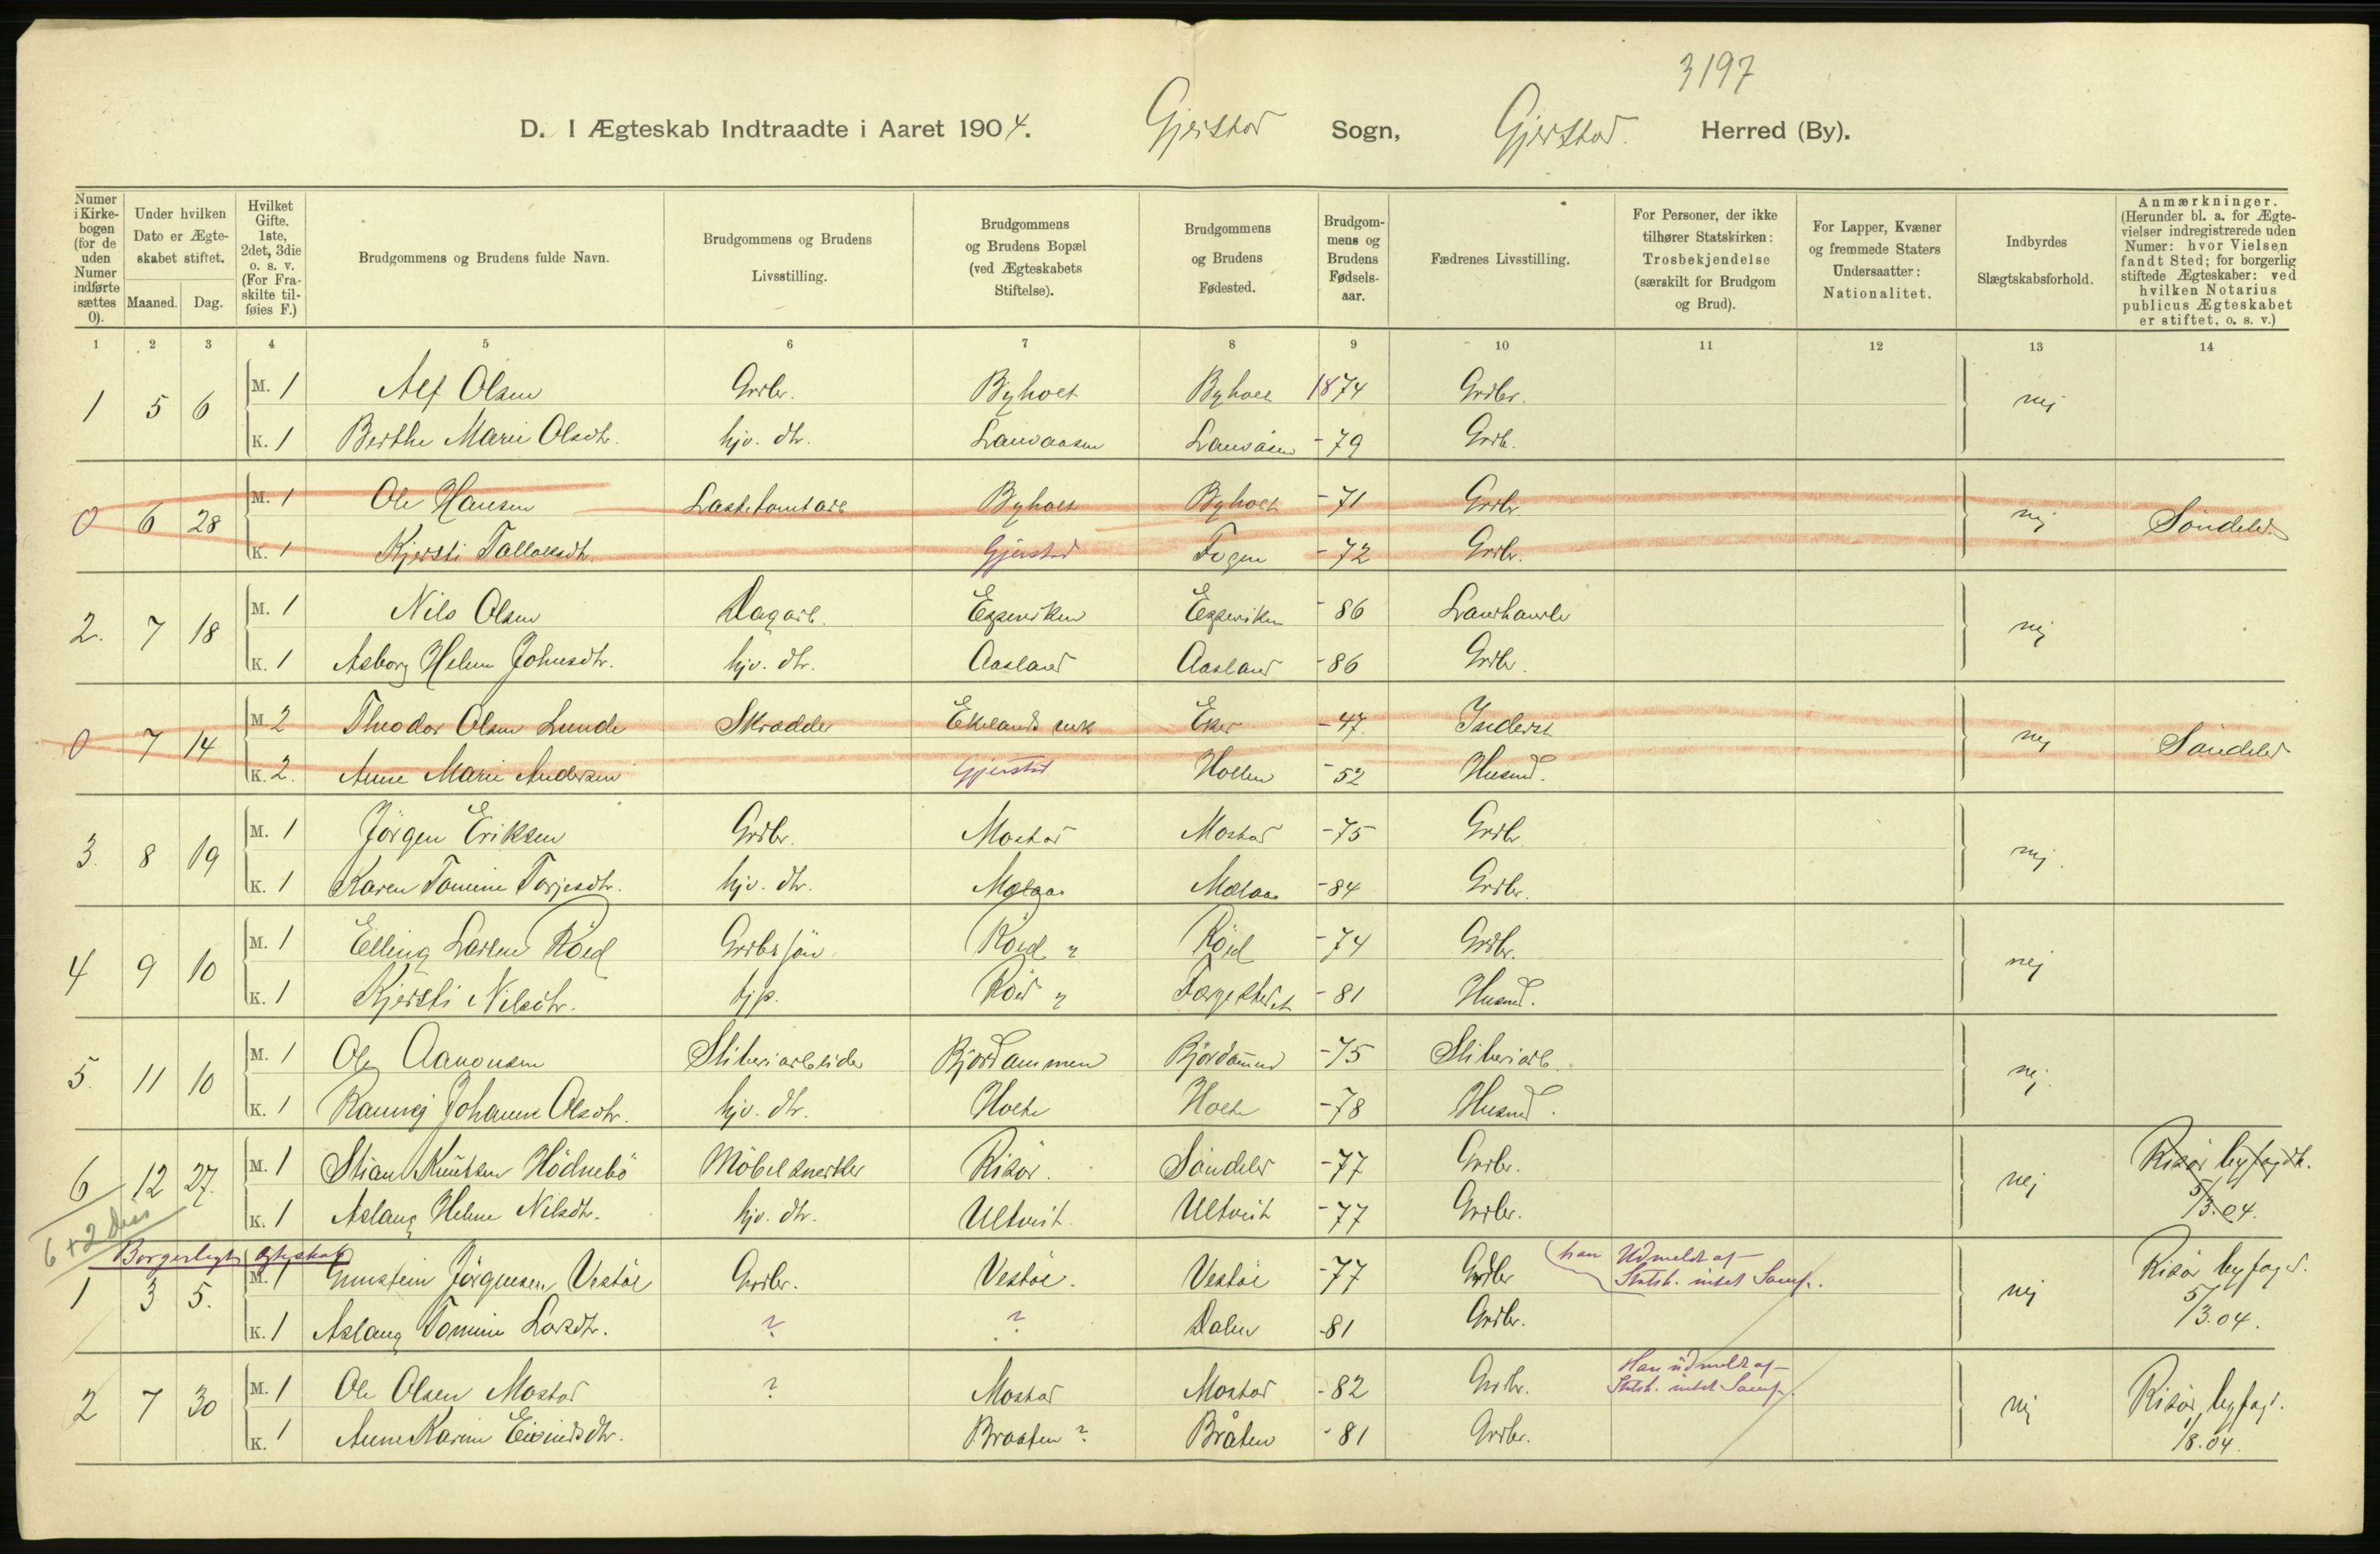 3197
D. I Ægteskab Indtraadte i Aaret 1904. Gjerstad Sogn, Gjerstad. Herred (By).
Numer i Kirkebogen (for de uden Numer indførte sættes 0).
Under hvilken Dato er Ægteskabet stiftet.
Maaned. Dag.
Hvilket Gifte. 1ste, 2det, 3die o. s. v. (For Fraskilte tilføies F.)
Brudgommens og Brudens fulde Navn.
Brudgommens og Brudens Livsstilling.
Brudgommens og Brudens Bopæl (ved Ægteskabets Stiftelse).
Brudgommens og Brudens Fødested.
Brudgommens og Brudens Fødselsaar.
Fædrenes Livsstilling.
For Personer, der ikke tilhører Statskirken: Trosbekjendelse (særskilt for Brudgom og Brud).
For Lapper, Kvæner og fremmede Staters Undersaatter: Nationalitet.
Indbyrdes Slægtskabsforhold.
Anmærkninger. (Herunder bl. a. for Ægtevielser indregistrerede uden Numer: hvor Vielsen fandt Sted; for borgerlig stiftede Ægteskaber: ved hvilken Notarius publicus Ægteskabet er stiftet, o. s. v.)
1 2 3 4 5 6 7 8 9 10 11 12 13 14
1 5 6 M. 1 Alf Olsen Grdbr. Byholt Byholt 1874 Grdbr. nej
K. 1 Berthe Marie Olsdtr. hjv. dtr. Lauvaasen Lauvåsen -79 Grdb.
0 6 28 M. 1 Ole Hansen Lastetomtarb Byholt Byholt -71 Grdbr. nej Söndeled
K. 1 Kjersti Tallaksdtr. Gjerstad Fogen -72 Grdbr.
2. 7 18 M. 1 Nils Olsen Dagarb. Eppeviken Eppeviken -86 Landhandle nej
K. 1 Asborg Helene Johnsdtr. hjv. dtr. Aasland Aasland -86 Grdbr.
0 7 14 M. 2 Theodor Olsen Lunde Skrædder Ekelands verk Eker -47 Inderst nej Söndeled
K. 2. Anne Marie Andersen Gjerstad Hollen -52 Husmd.
3. 8 19 M. 1 Jörgen Eriksen Grdbr. Mostad Mostad -75 Grdbr nej.
K. 1 Karen Tomine Torjesdtr. hjv. dtr. Mælaas Mælaas -84 Grdbr.
4 9 10 M. 1 Elling Larsen Röed Grdbr sön Röed " Röed -74 Grdbr. nej
K. 1 Kjersti Nilsdtr. tjp. Röed " -81 Husmd.
5. 11 10 M. 1 Ole Aanonsen Sliberiarbeider Bjordammen Bjordammen -75 Sliberiarb. nej.
K. 1 Rannej Johanne Olsdtr. hjv. dtr. Holte Holte -78 Husmd.
6 12 27. M. 1 Stian Knutsen Hödnebö Möbelsnedker Risör. Söndeled -77 Grdbr. nej Risör byfogdk.
5/3.04.
K. 1 Aslaug Helene Nilsdtr. hjv. dtr. Ultveit. Ultveit -77 Grdbr.
6 + 2 diss
Borgerligt ægteskab
1 3 5. M. 1 Gunstein Jörgensen Vestöl Grdbr. Vestöl. Vestöl -77 Grdbr (han Udmeldt af nej Risör byfogd.
Statsk. intet Samf.
5/3.04.
K. 1 Aslaug Tomine Larsdtr. ? ? Dalen -81 Grdbr.
2 7 30 M. 1 Ole Olsen Mostad ? Mostad Mostad -82 Grdbr. Han udmeldt af nej Risör byfogd.
Statsk. intet Samf.
1/8.04.
K. 1 Anne Karine Eivindsdtr. Braaten ? Bråten -81 Grdbr.